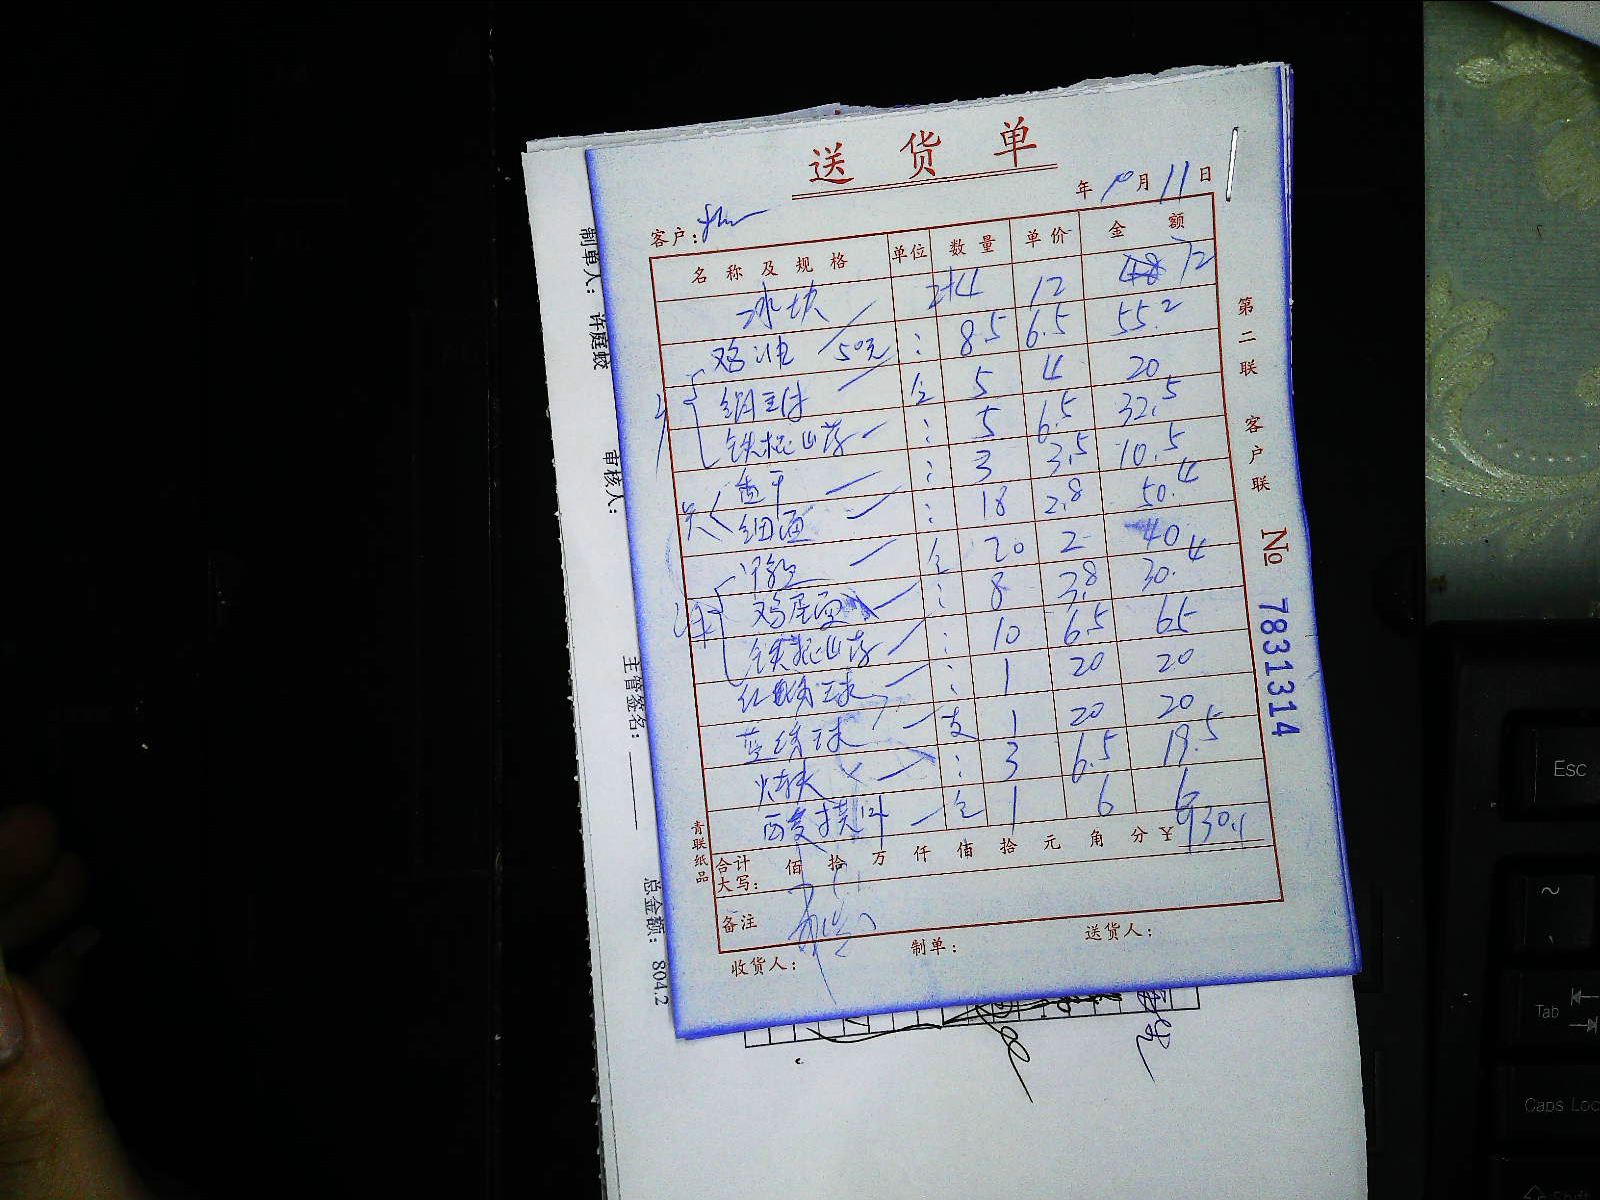 送货单
年 10 月 11 日
客户:
名称及规格 单位 数量 单价 金额
冰块 4 12 48 72
鸡油 50元 : 8.5 6.5 55.2
5 4 20
铁棍山药 : 5 6.5 32.5
香干 : 3 3.5 10.5
细面 : 18 2.8 50.4
20 2 40
鸡蛋面 : 8 3.8 30.4
铁棍山药 : 10 6.5 65
红绣球 : 1 20 20
蓝绣球 支 1 20 20
: 3 6.5 19.5
1 6 6
合计大写: 佰 拾 万 仟 佰 拾 元 角 分 ¥ 930.1
备注
收货人: 制单: 送货人:
青联纸品
第二联 客户联
№ 7831314
制单人: 许庭蛟 审核人: 主管签名: 总金额: 804.2
Esc
~
Tab
Caps Loc